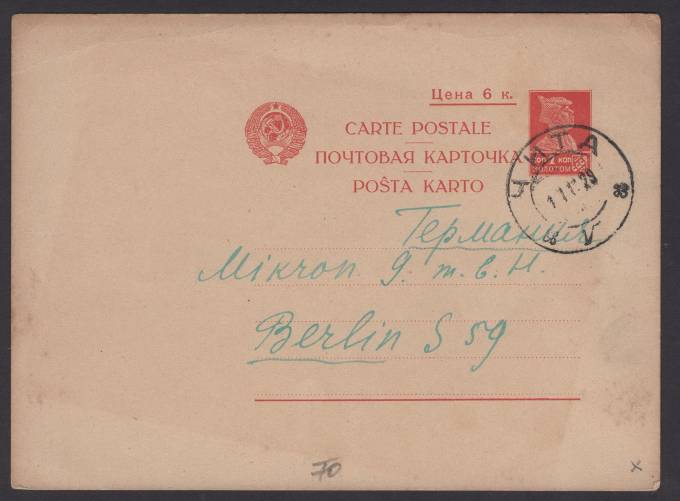 Цена 6 к.
CARTE POSTALE
ПОЧТОВАЯ КАРТОЧКА
POŜTA KARTO
7 КОП
ЗОЛОТОМ
ЧИТА
29
Германия
Mikron G. m. b. H.
Berlin S 59
70
x